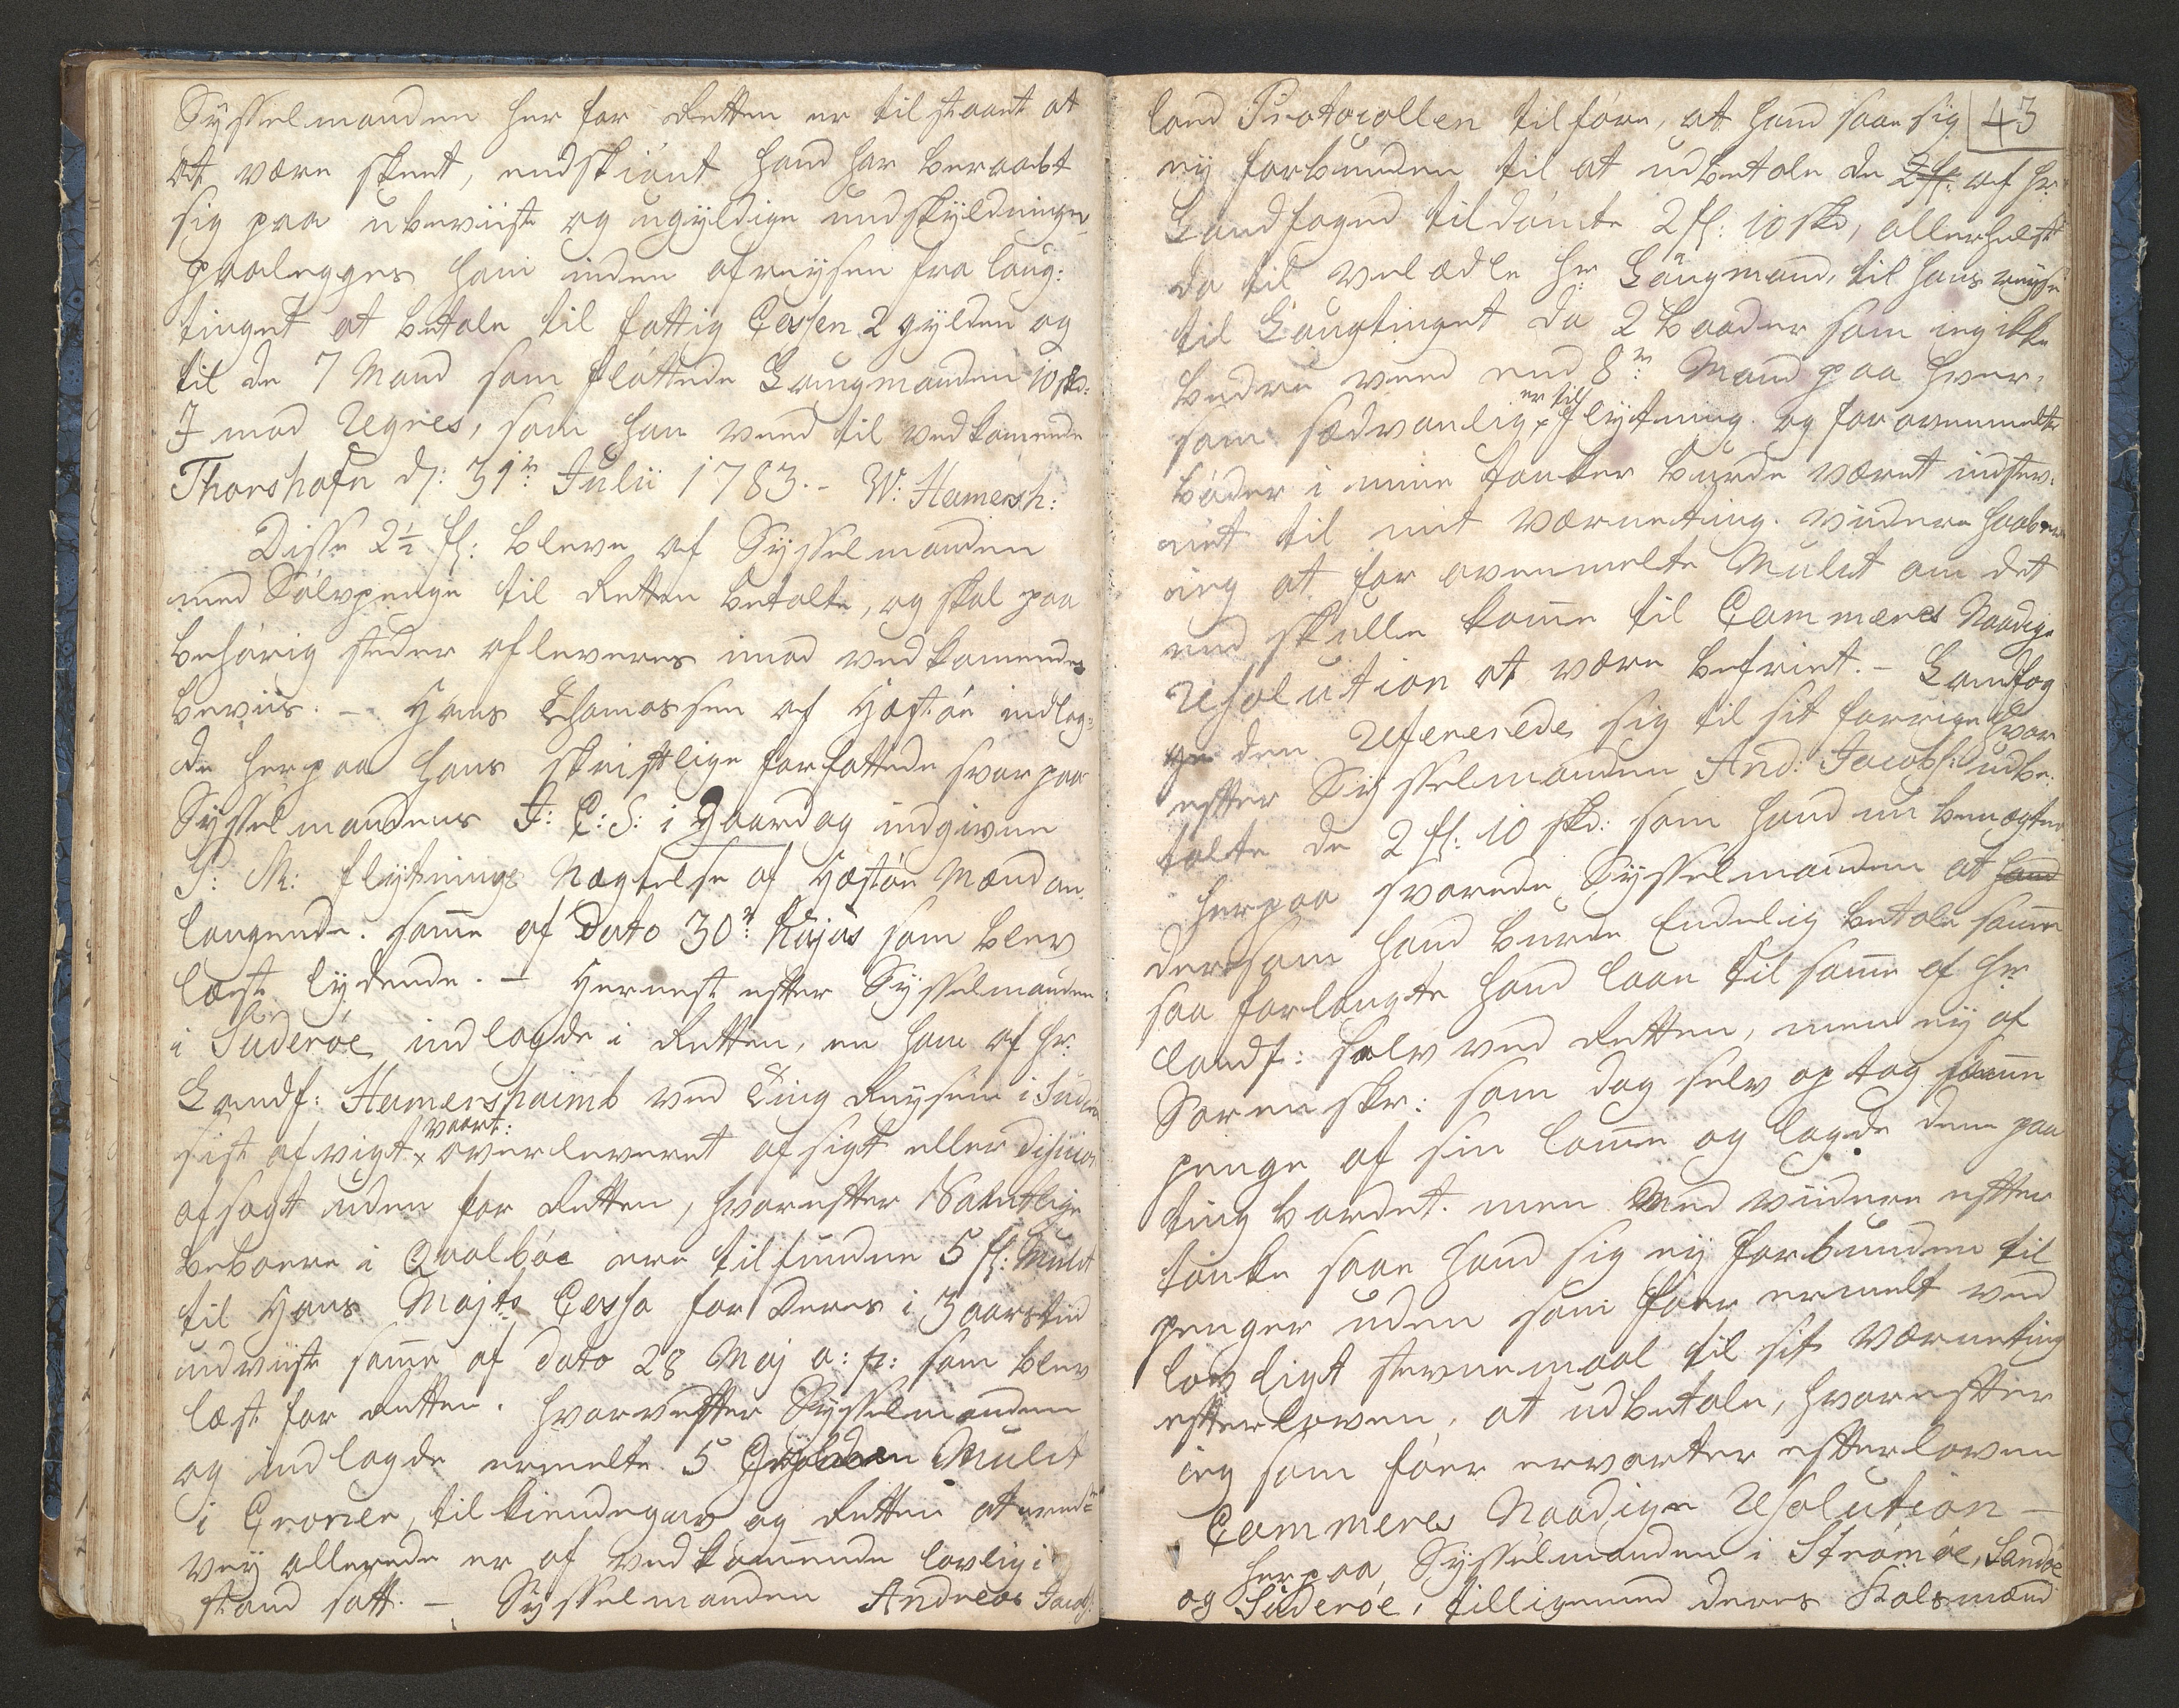 Sysselmanden her for Retten er tilstaaet at
at være skeet, endskiønt hand har beraabt
sig paa ubeviiste og ugyldige undskyldninger,
paalegges ham inden afreysen fra laug:
tinget at betale til fattig Cassen 2 gylden og
til de 7 Mand som fløttede Laugmanden 10 skd:
I mod Regres, som han veed til vedkommende
Thorshafn d: 31te Julii 1783.- W: Hamersh:
Disse 2½ fl: bleve af Sysselmanden
med Sølvpenge til Retten betalte, og skal paa
behørig steder afleveres imod vedkommendes
beviis. - Hans Thomassen af Hæstøe indlag:
de herpaa hans skriftlige forfattede svar paa
Sysselmandens J: C: S: i Gaardag indgivne
P: M: flytnings Nægtelse af Hæstøe Mænd an
langende. samme af Dato 30te hujus som blev
læst lydende. - Hernest efter Sysselmanden
i Suderøe indlagde i Retten, en ham af Hr:
Landf: Hamershaimb ved Ting Reysen i Suderøe
sist afvigt vaart: overleveret afsigt eller
afsagt uden for Retten, hvorefter Samtlige
beboere i Qvalbøe ere tilfundne 5 fl: Mulct
til Hans Majts Cassa for deres i 3 aars tid
udviiste samme af dato 28 Maj a: p: som blev
læst for Retten. hvorefter Sysselmanden
og indlagde ermelte 5 Gylden Mulct
i Croner, tilkiendegav og Retten at
vey allerede er af vedkommende lovlig i
stand satt. - Sysselmanden Andreas Jacobs:
43
lod Protocollen tilføre, at hand saae sig
ey forbunden til at udbetale de 2 fl: af Hr:
Landfoged tildømte 2 fl: 10 skd, allerhelst
da til velædle Hr Laugmand, til hans reyse
til Laugtinget da 2 baader som ieg ikke
bedre veed end 8te Mand paa hver,
som sædvanlig er til flytning. og for ovenmelte
bøder i mine tanker burde været indstev:
net til mit værneting. videre haaber
ieg at for ovenmelte Mulct om det
end skulle komme til Cammeres Naadige
Resolution at være befriet. - Landfog
den Refererede sig til sit forrige hvor
efter Sysselmanden And: Jacobs: udbe:
talte de 2 fl: 10 skd: som hand nu benægter
herpaa svarede Sysselmanden at hand
dersom hand burde Endelig betale samme
saa forlangte hand laan til samme af Hr
Landf: selv ved Retten, men ey af
Sorenskr: som dog selv optog samme
penge af sin lomme og lagde dem paa
ting bordet. men Med viidere efter
tanke saae hand sig ey forbunden til
penger uden som føer ermelt ved
lovligt stevnemaal til sit værneting
efter loven, at udbetale, hvorefter
ieg som føer ervarter efter loven
Cammeres Naadige Resolution -
herpaa Sysselmanden i Strømøe, Sandøe
og Suderøe, tilligemed deres Kalsmænd